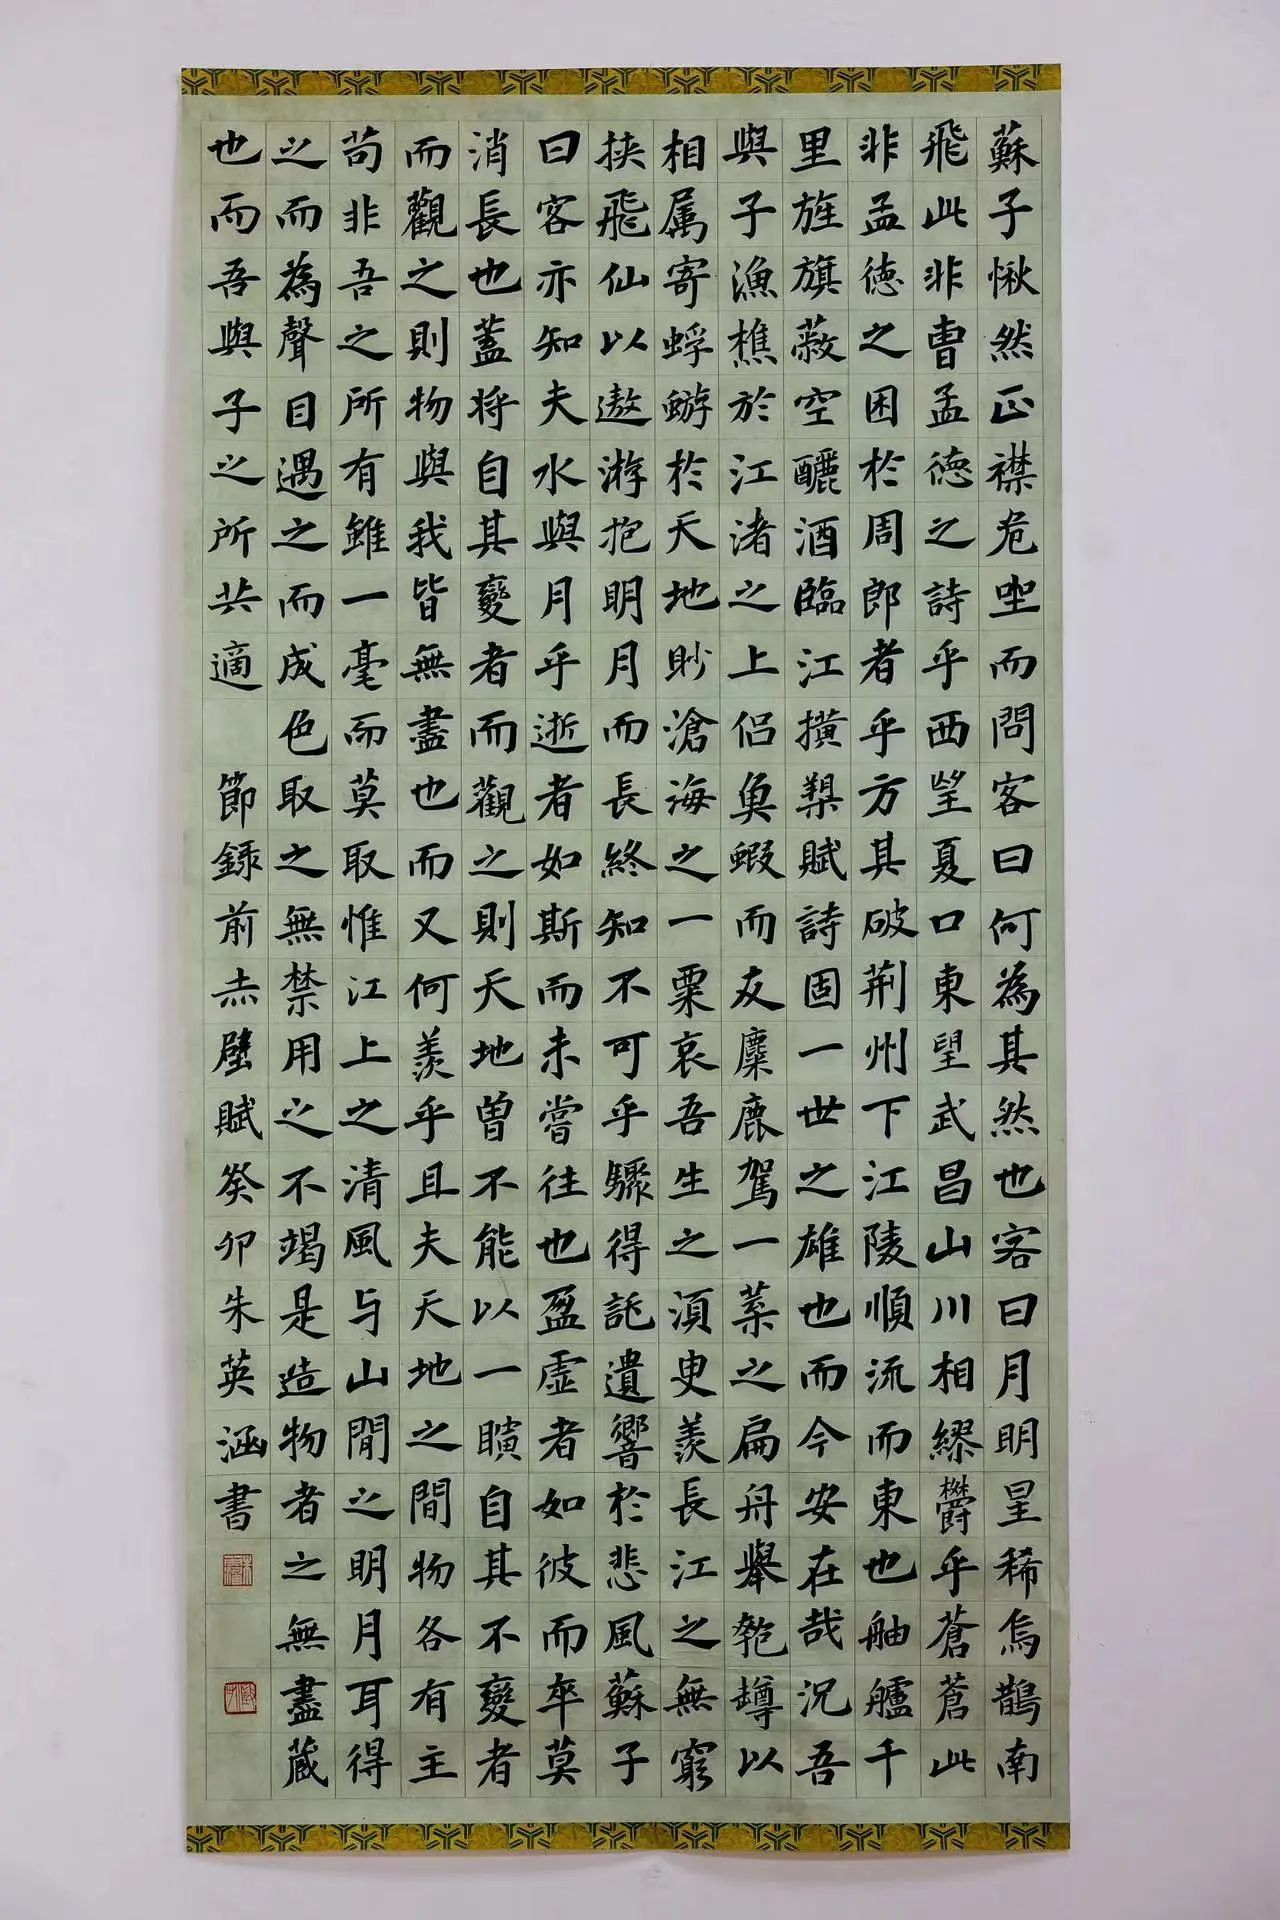 蘇子愀然正襟危坐而問客曰何為其然也客曰月明星稀烏鵲南
飛此非曹孟德之詩乎西望夏口東望武昌山川相繆鬱乎蒼蒼此
非孟德之困於周郎者乎方其破荊州下江陵順流而東也舳艫千
里旌旗蔽空釃酒臨江橫槊賦詩固一世之雄也而今安在哉況吾
與子漁樵於江渚之上侶魚蝦而友麋鹿駕一葉之扁舟舉匏樽以
相属寄蜉蝣於天地眇滄海之一粟哀吾生之須臾羨長江之無窮
挾飛仙以遨游抱明月而長終知不可乎驟得託遺響於悲風蘇子
曰客亦知夫水與月乎逝者如斯而未嘗往也盈虛者如彼而卒莫
消長也蓋將自其變者而觀之則天地曾不能以一瞚自其不變者
而觀之則物與我皆無盡也而又何羨乎且夫天地之間物各有主
苟非吾之所有雖一毫而莫取惟江上之清風与山間之明月耳得
之而為聲目遇之而成色取之無禁用之不竭是造物者之無盡藏
也而吾與子之所共適 節録前赤壁賦癸卯朱英涵書